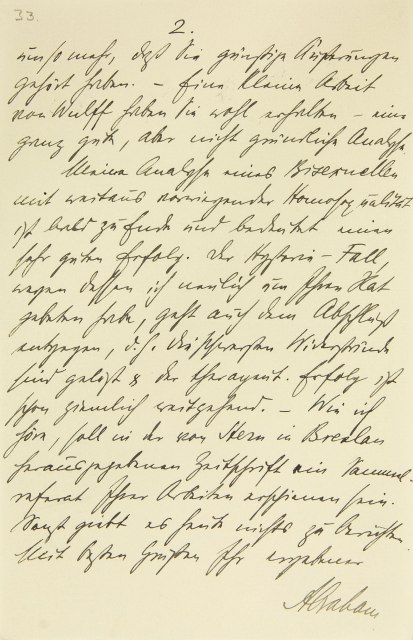 33.
2.
umso mehr, daß Sie günstige Äußerungen
gehört haben. – Eine kleine Arbeit
von Wulff haben Sie wohl erhalten – eine
ganz gute, aber nicht gründliche Analyse.
Meine Analyse eines Bisexuellen
mit weitaus vorwiegender Homosexualität
ist bald zu Ende und bedeutet einen
sehr guten Erfolg. Der Hysterie-Fall,
wegen dessen ich neulich um Ihren Rat
gebeten habe, geht auch dem Abschluß
entgegen, d. h. die schwersten Widerstände
sind gelöst & der therapeut. Erfolg ist
schon ziemlich weitgehend. – Wie ich
höre, soll in der von Stern in Breslau
herausgegebenen Zeitschrift ein Sammel-
referat Ihrer Arbeiten erschienen sein.
Sonst giebt es heute nichts zu berichten.
Mit besten Grüßen Ihr ergebener
Abraham